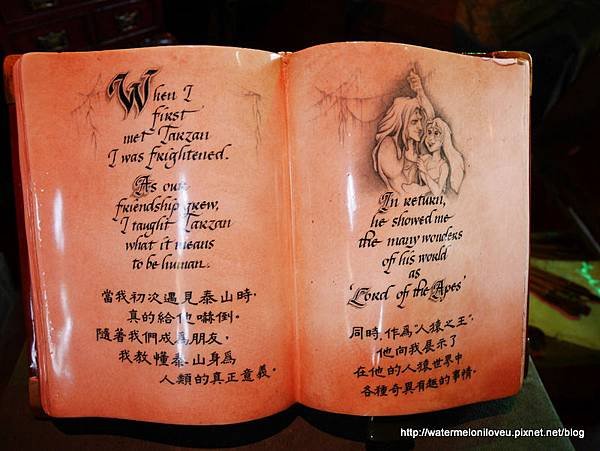 When I
first
met Tarzan
I was frightened.
As our
friendship grew,
I taught Tarzan
what it means
to be human.
當我初次遇見泰山時，
真的給他嚇倒。
隨著我們成為朋友，
我教懂泰山身為
人類的真正意義。
In return,
he showed me
the many wonders
of his world
as
'Lord of the Apes'
同時，作為"人猿之王"，
他向我展示了
在他的人猿世界中
各種奇異有趣的事情。
http://watermeloniloveu.pixnet.net/blog